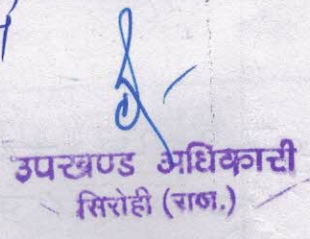 उपखण्ड अधिकारी
सिरोही (राज.)